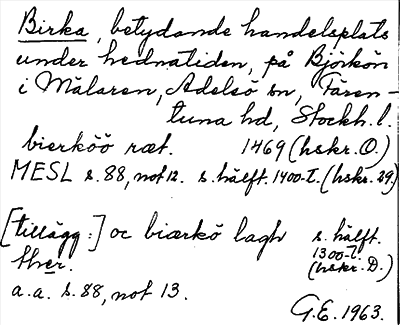 Birka, betydande handelsplats
under hednatiden, på Björkön
i Mälaren, Adelsö sn, Fären-
tuna hd, Stockh. l.
bierköö ræt. 1469 (hskr. O.)
MESL s. 88, not 12. s. hälft. 1400-t. (hskr. 29)
[tillägg:] oc biærkö lagh s. hälft.
1300-t.
thær. (hskr. D.)
a.a. s. 88, not 13.
G.E. 1963.